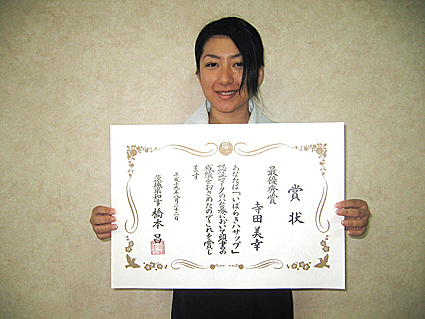 賞状
最優秀賞
寺田美幸
あなたは「いばらきハサップ」
認証マークの公募において頭書の
成績をおさめたのでこれを賞し
ます
平成十六年八月二十二日
茨城県知事 橋本昌